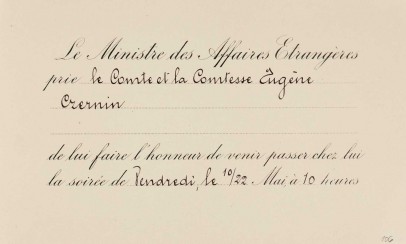 Le Ministre des Affaires Etrangères
prie le Comte et la Comtesse Eugène
Czernin
de lui faire l'honneur de venir passer chez lui
la soirée de Vendredi, le 10/22 Mai, à 10 heures